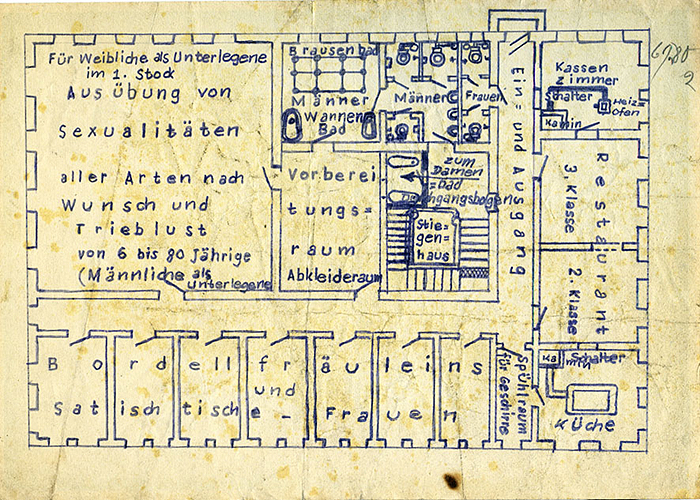 Für Weibliche als Unterlegene
im 1. Stock
Ausübung von
Sexualitäten
aller Arten nach
Wunsch und
Trieblust
von 6 bis 80 jährige
(Männliche als
unterlegene
Brausenbad
Männer
Wannen
Bad
Männer
Frauen
Vorberei
tungs=
raum
Abkleideraum
zum
Damen
=bad
Stie=
gen=
haus
Ein= und Ausgang
Kassen
zimmer
Schalter
Heiz=
ofen
Kamin
Restaurant
3. Klasse
2. Klasse
Bordellfräuleins
und
Satischtische-Frauen
Spühlraum
für Geschirre
Ka
min
Schalter
Küche
6780
2